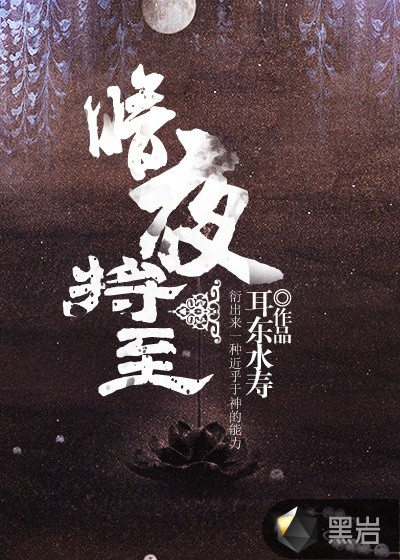 暗夜将至
耳东水寿◎作品
衍出来一种近乎于神的能力
黑岩